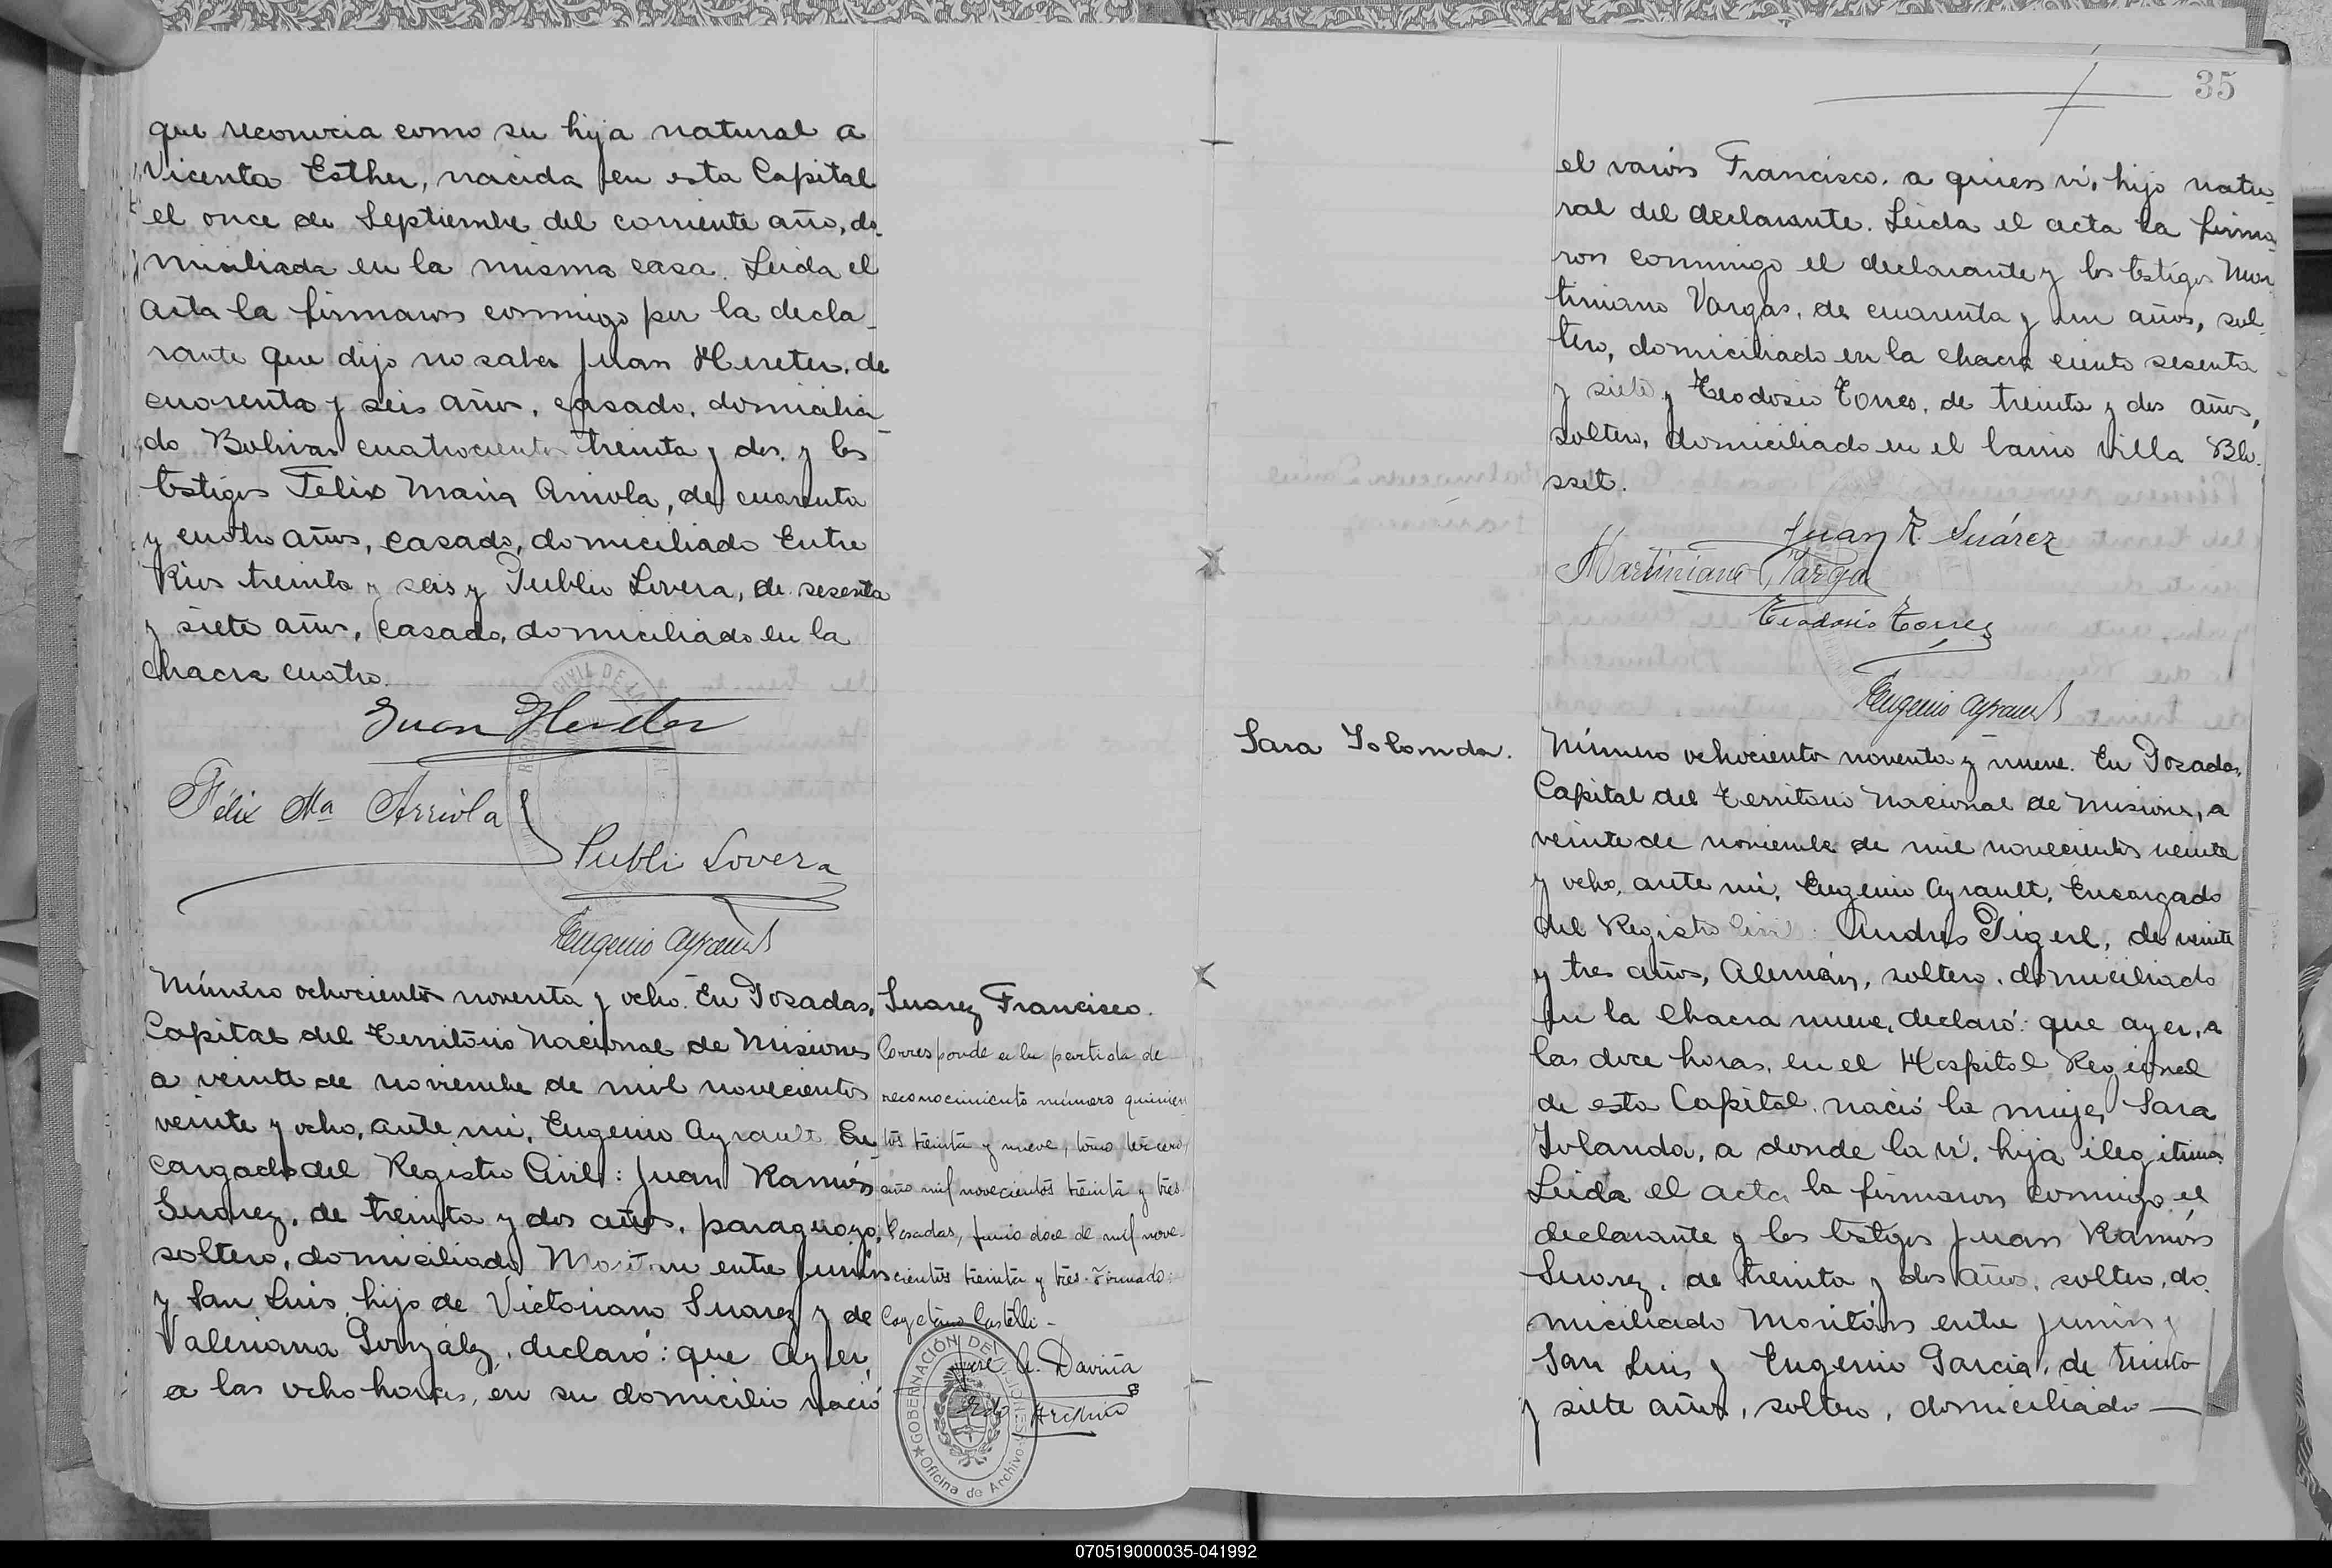 que reconocia como su hija natural a
Vicenta Esther, nacida en esta Capital
el once de Septiembre del corriente año, do-
miciliada en la misma casa. Leida el
acta la firmaron conmigo por la decla-
rante que dijo no saber Juan Hereter, de
cuarenta y seis años, casado, domicilia-
do Bolivar cuatrocientos treinta y dos y los
testigos Felix Maria Arriola, de cuarenta
y cuatro años, casado, domiciliado Entre
Rios treinta y seis y Publio Lovera, de sesenta
y siete años, casado, domiciliado en la
chacra cuatro.
Juan Hereter
Félix Ma Arriola
Publi Lovera
Eugenio Ayrault
Número ochocientos noventa y ocho. En Posadas,
Capital del Territorio Nacional de Misiones
a veinte de noviembre de mil novecientos
veinte y ocho, ante mi, Eugenio Ayrault, En-
cargado del Registro Civil: Juan Ramón
Suarez, de treinta y dos años, paraguayo,
soltero, domiciliado Maritan entre Junin
y San Luis, hijo de Victoriano Suarez y de
Valeriana González, declaró: que ayer,
a las ocho horas, en su domicilio nació
Suarez Francisco.
Corresponde a la partida de
reconocimiento número quinien-
tos treinta y nueve, tomo tercero,
año mil novecientos treinta y tres.
Posadas, junio doce de mil nove-
cientos treinta y tres. Firmado:
Cayetano Castelli.-
A. Daviña
GOBERNACIÓN DE MISIONES
Oficina de Archivo
35
el varón Francisco, a quien vi, hijo natu-
ral del declarante. Leida el acta la firma-
ron conmigo el declarante y los testigos Mar-
tiniano Vargas, de cuarenta y un años, sol-
tero, domiciliado en la chacra ciento sesenta
y siete y Teodosio Torres, de treinta y dos años,
soltero, domiciliado en el barrio Villa Blo-
sset.
Juan R. Suárez
Martiniano Varga
Teodosio Torres
Eugenio Ayrault
Sara Iolanda.
Número ochocientos noventa y nueve. En Posadas,
Capital del Territorio Nacional de Misiones, a
veinte de noviembre de mil novecientos veinte
y ocho, ante mi, Eugenio Ayrault, Encargado
del Registro Civil: Andres Pigerl, de veinte
y tres años, Alemán, soltero, domiciliado
en la Chacra nueve, declaró: que ayer, a
las doce horas, en el Hospital Regional
de esta Capital, nació la mujer Sara
Iolanda, a donde la vi, hija ilegitima.
Leida el acta la firmaron conmigo el
declarante y los testigos Juan Ramón
Suarez, de treinta y dos años, soltero, do-
miciliado Maritán entre Junin y
San Luis y Eugenio Garcia, de treinta
y siete años, soltero, domiciliado —
070519000035-041992